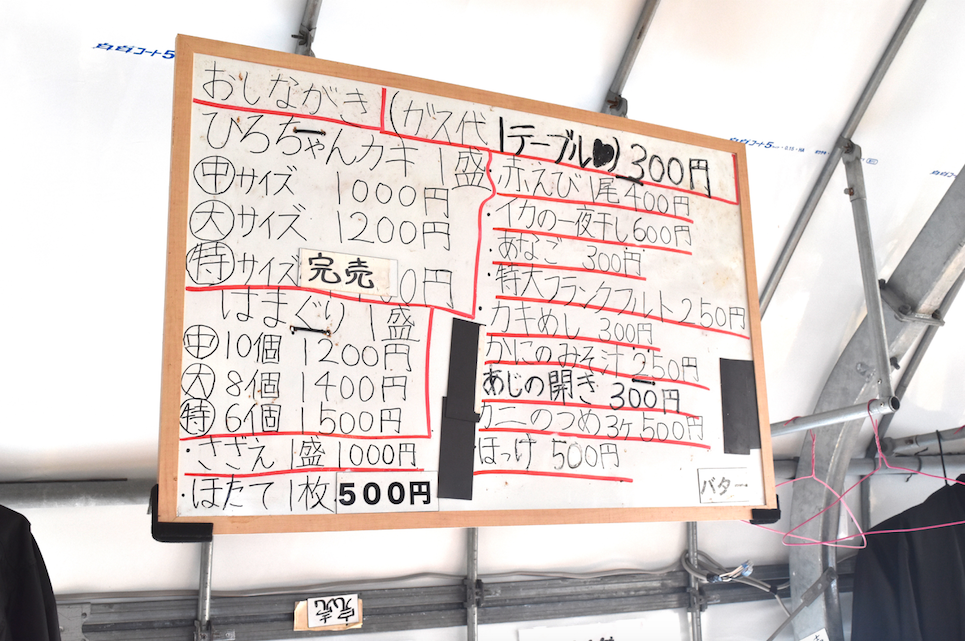 白白コート5
おしながき (ガス代 1テーブル♥) 300円
ひろちゃんカキ 1盛
㊥サイズ 1000円
㊛サイズ 1200円
㊕サイズ 完売 00円
はまぐり 1盛
㊥10個 1200円
㊛8個 1400円
㊕6個 1500円
・さざえ 1盛 1000円
・ほたて 1枚 500円
・赤えび 1尾 400円
・イカの一夜干し 600円
・あなご 300円
・特大フランクフルト 250円
カキめし 300円
かにのみそ汁 250円
あじの開き 300円
カニのつめ 3ケ 500円
ほっけ 500円
バター
完売